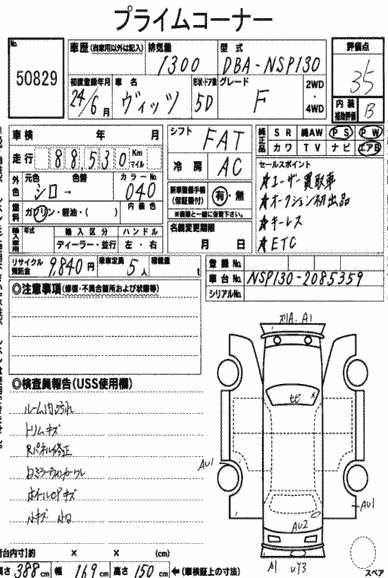 プライムコーナー
No.
50829
車歴 (自家用以外は記入)
排気量
1300
型式
DBA-NSP130
評価点
35
初度登録年月
24/6月
車名
ヴィッツ
形状・ドア数
5D
グレード
F
2WD
・
4WD
内装
補助評価
B
車検 年 月
走行
88530
Km
マイル
シフト
FAT
冷房
AC
純正装備
SR 純AW PS PW
カワ TV ナビ エアB
外色
元色
シロ→
色替
カラーNo.
040
燃料
ガソリン・軽油・( )
内装色
新車整備手帳
(保証書付)
有・無
※後日と一緒に保管下さい。
セールスポイント
★ユーザー買取車
★オークション初出品
★キーレス
★ETC
輸入車
年式
輸入区分
ディーラー・並行
ハンドル
左・右
名義変更期限
月 日
リサイクル
預託金
9,840円
乗車定員
5人
積載量
t
登録No.
車台No.
NSP130-2085359
シリアルNo.
◎注意事項(修復・不具合箇所および状態等)
◎検査員報告(USS使用欄)
ルーム内汚れ
トリムキズ
Rパネル修正
ホイールCPキズ
A1
セピ
AU1
AU1
AU2
A1
荷台内寸)約 × × (cm)
長さ 388 cm 幅 169 cm 高さ 150 cm ←(車検証上の寸法)
スペア